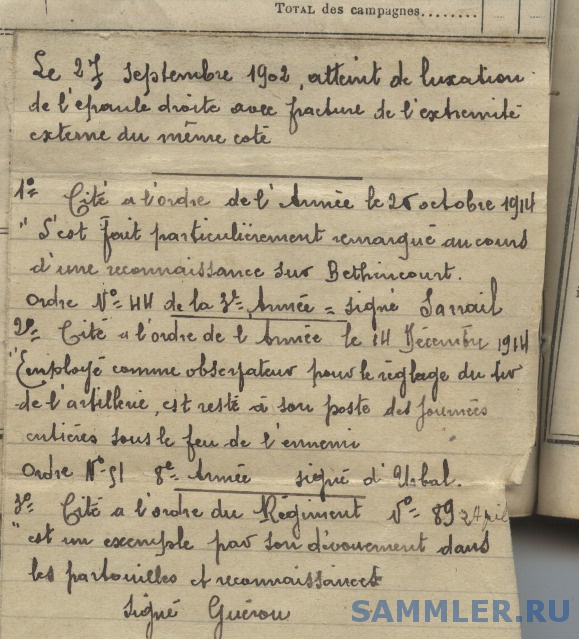 TOTAL des campagnes........
Le 27 Septembre 1902, atteint de luxation
de l'épaule droite avec fracture de l'extremité
externe du même coté
1º Cité a l'ordre de l'Année le 26 octobre 1914
" S'est fait particulièrement remarqué au cours
d'une reconnaissance sur Bethincourt.
Ordre Nº 44 de la 3e Année = signé Sarrail
2º Cité a l'ordre de l'Année le 14 Décembre 1914
"Employé comme observateur pour le réglage du tir
de l'artillerie, est resté à son poste des journées
entières sous le feu de l'ennemi
Ordre Nº 51 8e Année signé d'Urbal.
3º Cité a l'ordre du Régiment Nº 89
"est un exemple par son dévouement dans
les patrouilles et reconnaissances
signé Guérou
SAMMLER.RU